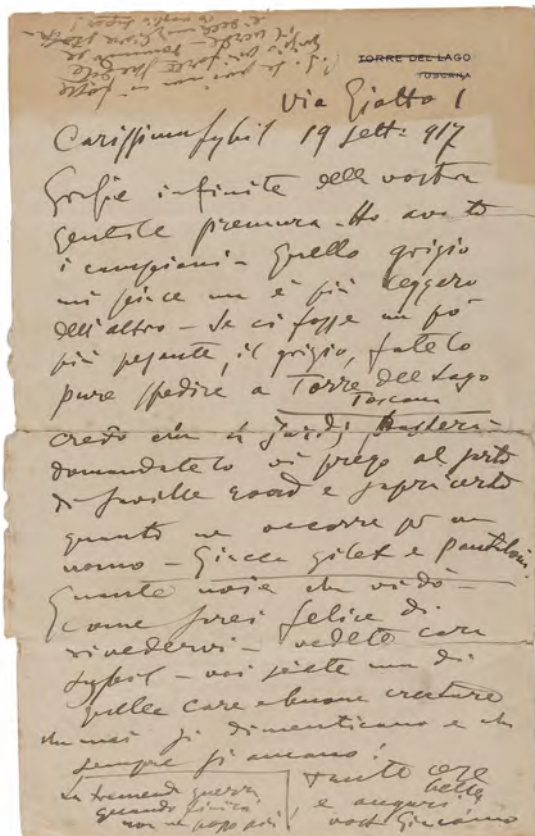 TORRE DEL LAGO
TOSCANA
Via Giotto 1
Carissima Sybil 19 sett: 917
Grazie infinite della vostra
gentile premura - Ho avuto
i campioni - Quello grigio
mi piace ma è più leggero
dell'altro - Se ci fosse un pò
più pesante, il grigio, fatelo
pure spedire a Torre del Lago
Toscana
credo che 6 basterà -
domandatelo vi prego al
di Saville e
quanto ne occorre per un
uomo - Giacca gilet e pantaloni.
Quante noie che vi dò -
Come sarei felice di
rivedervi - vedete cara
Sybil - voi siete una di
quelle care e buone creature
che mai si dimenticano e che
sempre si amano!
La tremenda guerra
quando finirà?
non ne posso più
Tante cose
belle
e auguri
vost Giacomo
P.S. Se poi non ci fosse
grigio più forte
il verde -